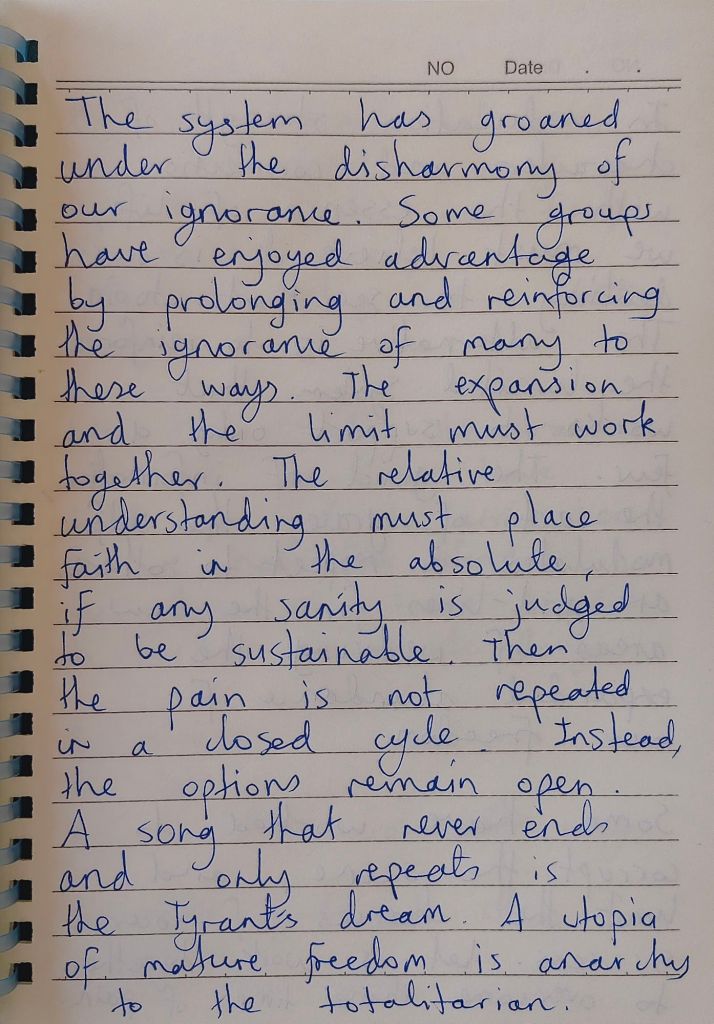 NO Date . .
The system has groaned
under the disharmony of
our ignorance. Some groups
have enjoyed advantage
by prolonging and reinforcing
the ignorance of many to
these ways. The expansion
and the limit must work
together. The relative
understanding must place
faith in the absolute,
if any sanity is judged
to be sustainable. Then
the pain is not repeated
in a closed cycle. Instead,
the options remain open.
A song that never ends
and only repeats is
the Tyrants dream. A utopia
of mature freedom is anarchy
to the totalitarian.